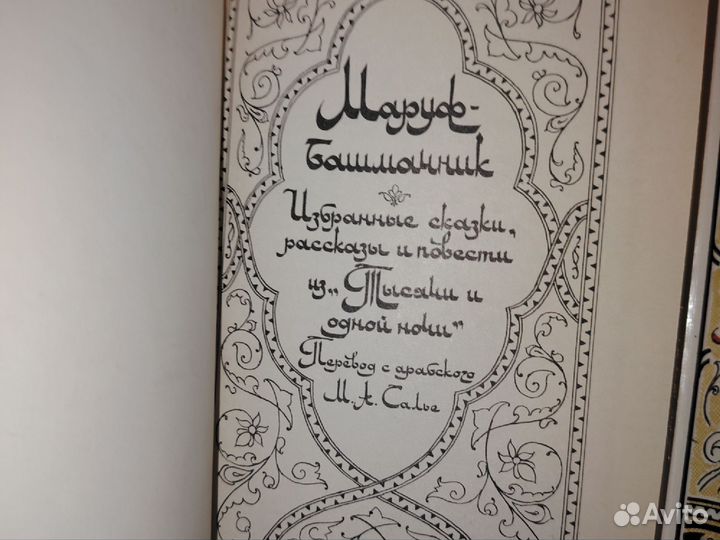 Маруф-
башмачник
Избранные сказки,
рассказы и повести
из „Тысячи и
одной ночи“
Перевод с арабского
М. А. Салье
Avito